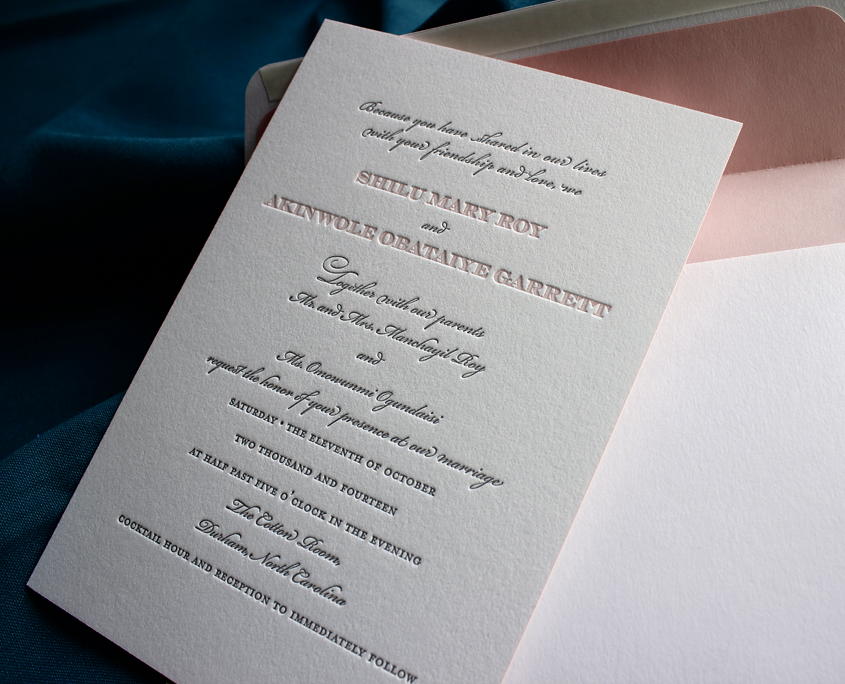 Because you have shared in our lives
with your friendship and love, we
SHILU MARY ROY
and
AKINWOLE OBATAIYE GARRETT
Together with our parents
Mr. and Mrs. Manchayil Roy
and
Ms. Omowunmi Ogundaisi
request the honor of your presence at our marriage
SATURDAY • THE ELEVENTH OF OCTOBER
TWO THOUSAND AND FOURTEEN
AT HALF PAST FIVE O'CLOCK IN THE EVENING
The Cotton Room,
Durham, North Carolina
COCKTAIL HOUR AND RECEPTION TO IMMEDIATELY FOLLOW